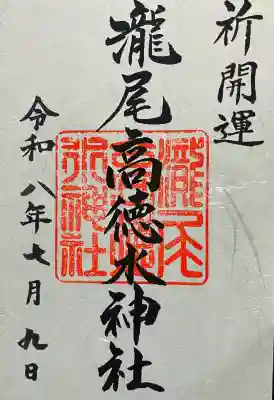 祈開運
瀧尾高徳水神社
令和八年七月九日
瀧尾高徳水神社